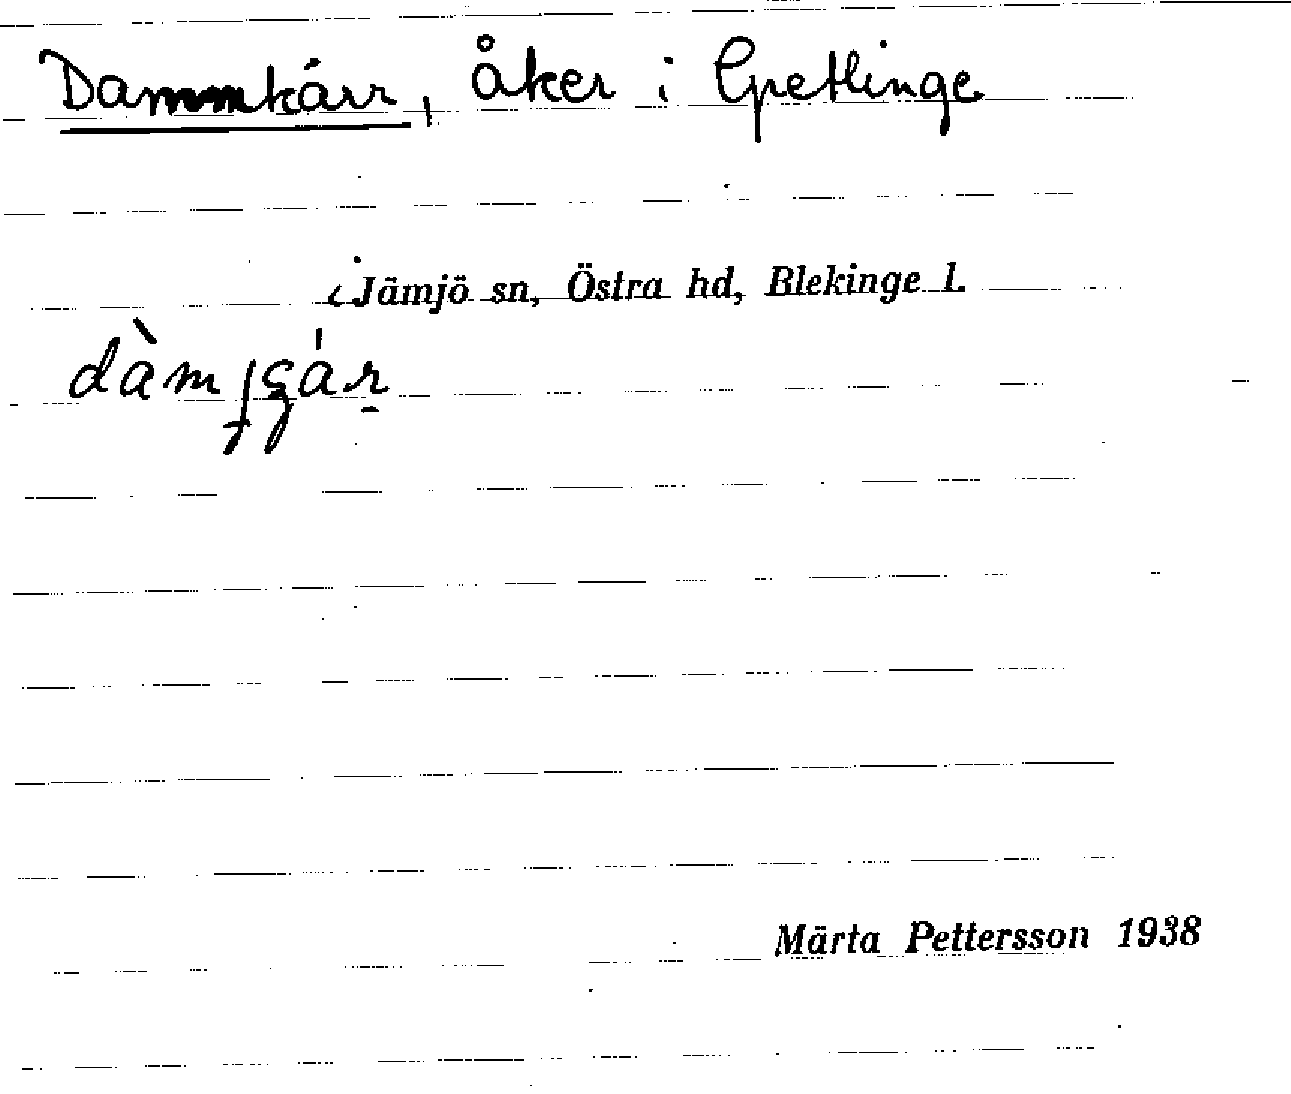 Dammkärr, åker i Gretlinge
i Jämjö sn, Östra hd, Blekinge l.
Märta Pettersson 1938